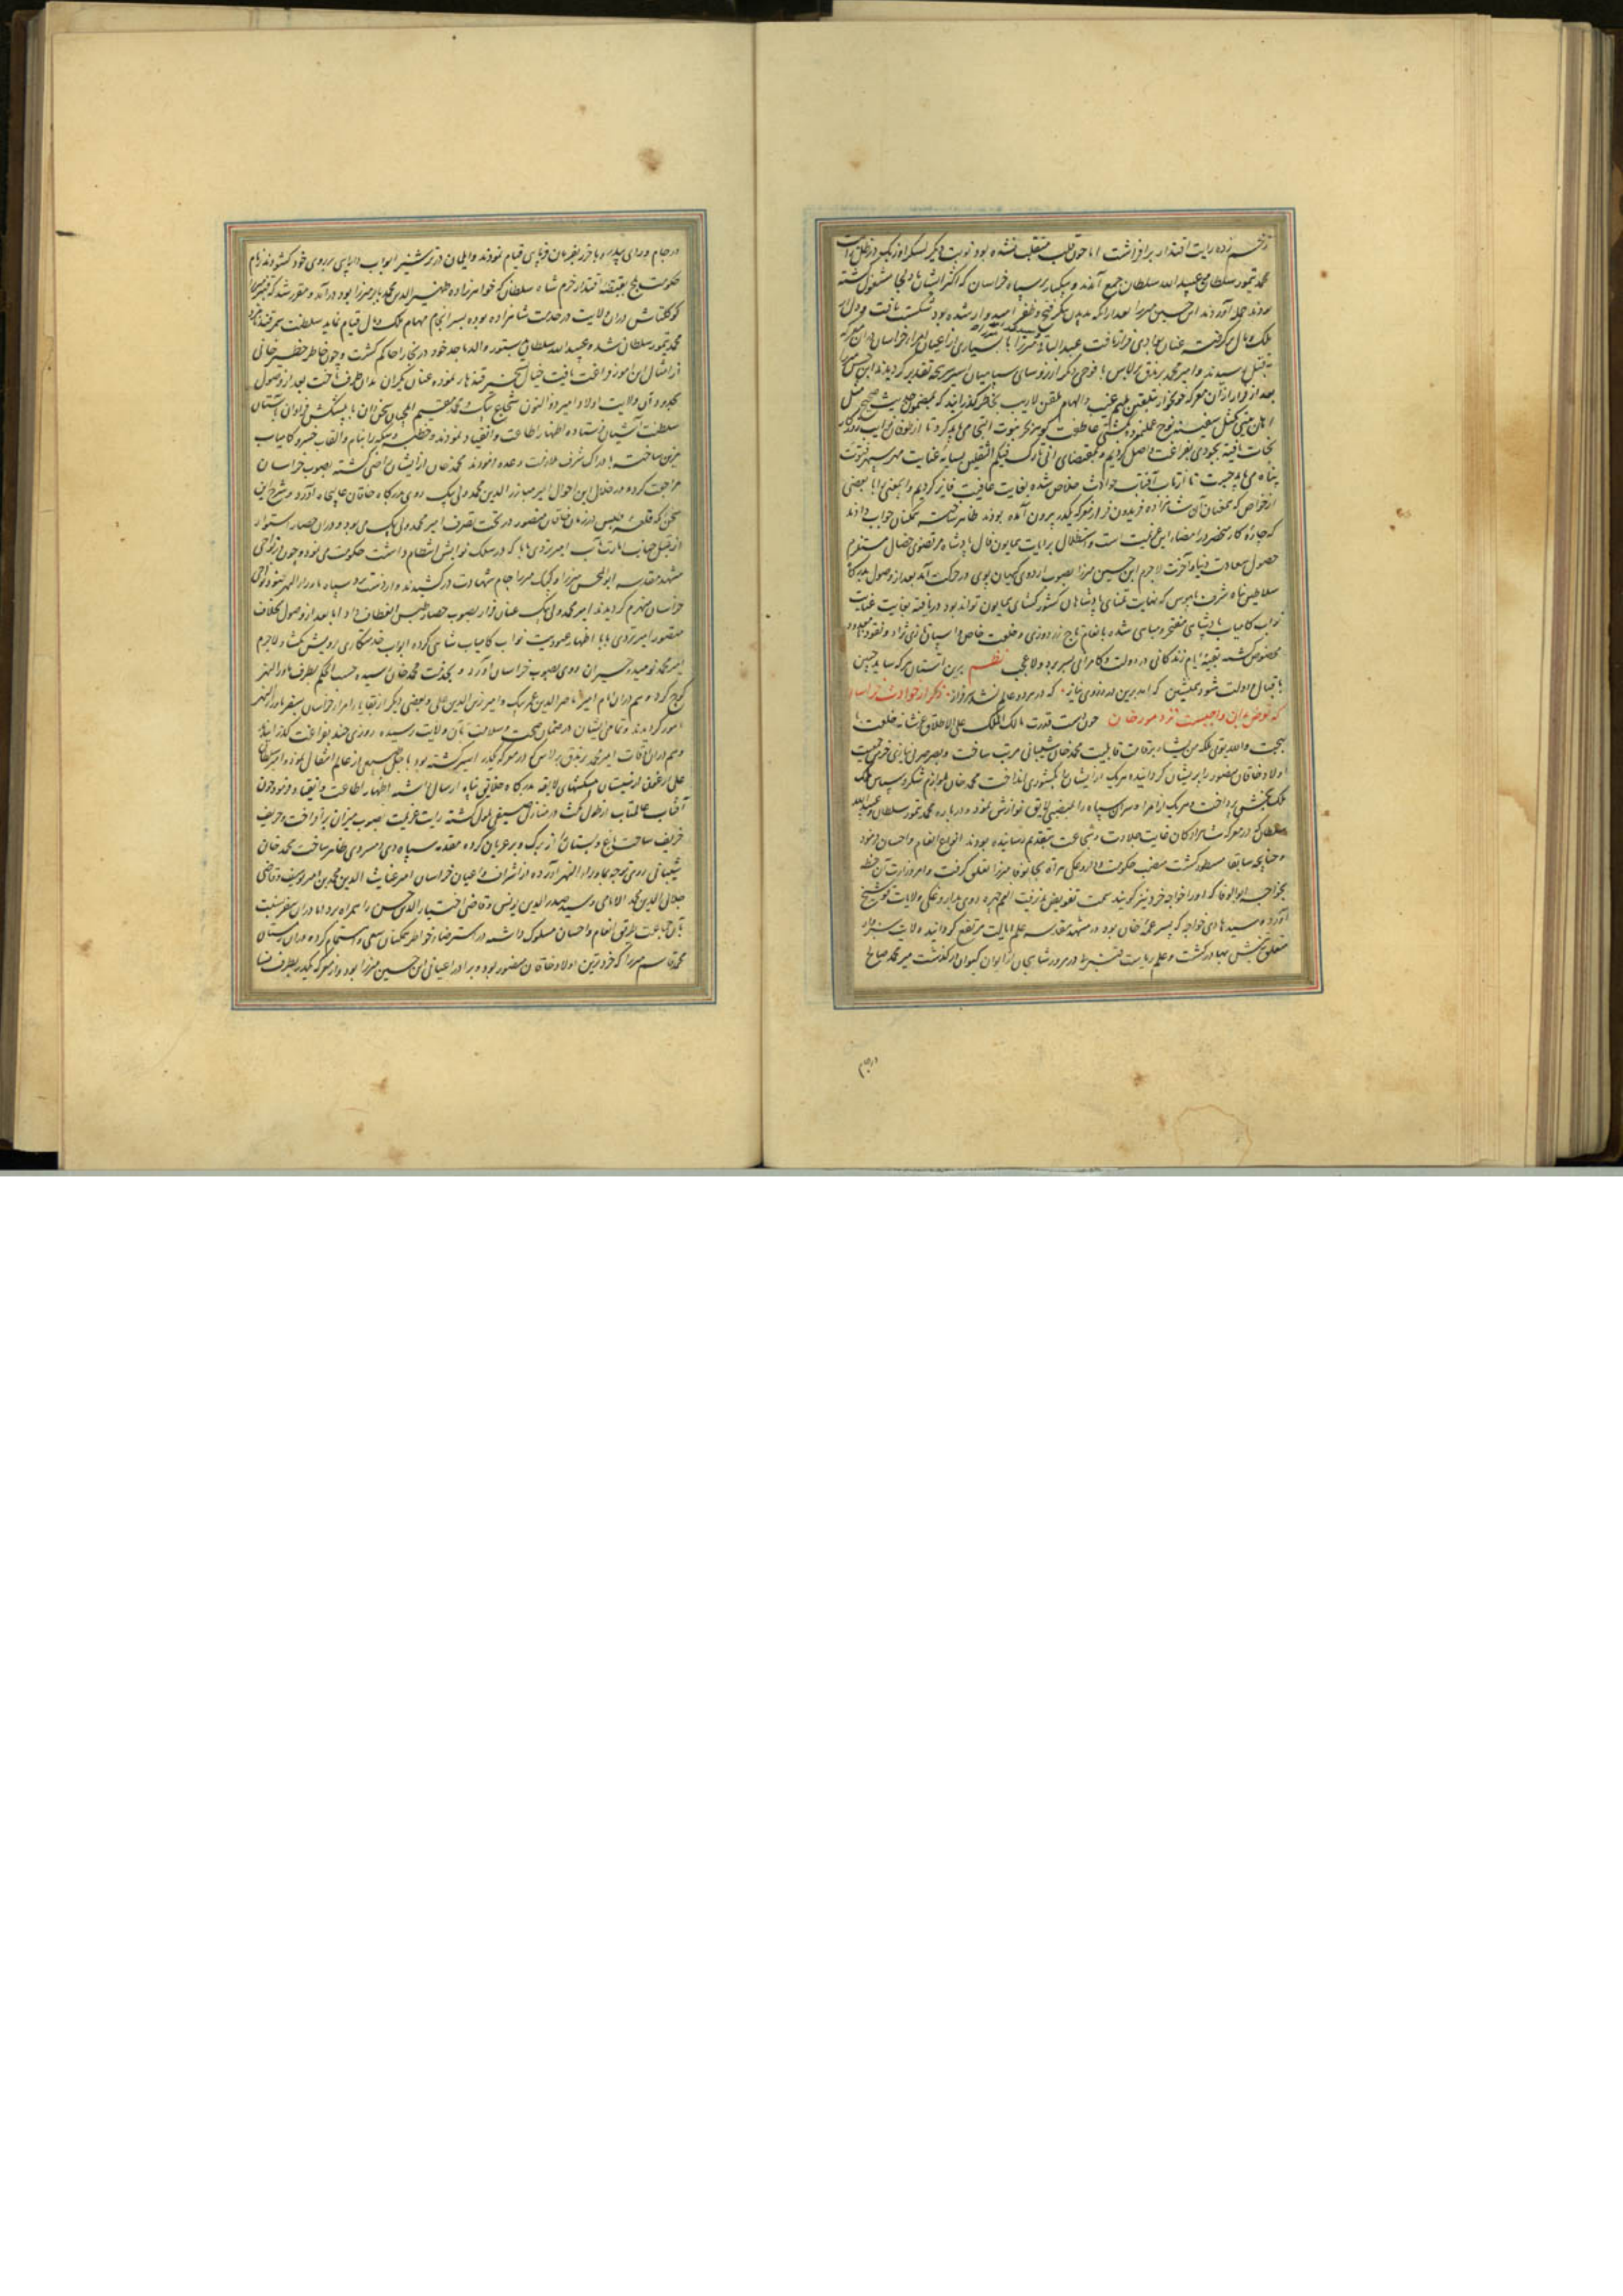 زده رایت اقتدار برافراشت اما چون قلب منقلب نشده بود نوبت دیگر لشکر اوزبک
محمد تیمور سلطان و عبید الله سلطان جمع آمدند و بیکبار بر سپاه خراسان که اکثر ایشان مشغول گشته
بودند حمله آوردند ابن حسین میرزا بعد از آنکه بدیدن پیکر فتح و ظفر امیدوار شده بود شکست یافت و دل از
ملک و مال برگرفته عنان بوادی فرار تافت عبد الباقی میرزا با بسیاری از اعیان امراء خراسان در آن معرکه
بقتل رسیدند و امیر محمد برندق برلاس با فوجی دیگر از رؤسای سپاهیان اسیر سرپنجه تقدیر گردیدند ابن حسین میرزا
بعد از فرار از آن معرکه خونخوار بتلقین ملهم غیب و الهام ملقن لاریب بخاطر گذرانید که بمضمون حدیث صحیح مثل
اهل بیتی کمثل سفینة نوح
نجات یافته
پناه می باید جست تا از تاب آفتاب حوادث خلاص شده بغایت عافیت فایز گردیم و این معنی را با بعضی
از خواص که همعنان آن شاهزاده فریدون فر از معرکه یکه بیرون آمده بودند ظاهر ساخت همگنان جواب دادند
که چاره کار منحصر در امضاء این عزیمت است و استظلال برایت همایون فال پادشاه مرتضوی خصال مستلزم
حصول سعادت دنیا و آخرت لاجرم ابن حسین میرزا بصوب اردوی کیهان پوی در حرکت آمد بعد از وصول بدرگاه
سلاطین پناه شرف پابوس که نهایت تمنای پادشاهان کشورگشای همایون تواند بود دریافته بغایت عنایت
نواب کامیاب پادشاهی مفتخر و مباهی شده بانعام تاج زردوزی و خلعت خاص و اسپان تازی نژاد و نقود نامعدود
مخصوص گشت بقیه ایام زندگانی در دولت و کامرانی بسر برد ولاعجب نظم برین آستان هر که ساید جبین
باقبال و دولت شود همنشین که آمد برین در ز روی نیاز که در هر دو عالم نشد سرفراز ذکر از حوادث خراسان
که نوشتن آن واجبست نزد مورخان چون دست قدرت مالک الملک علی الاطلاق عز شانه خلعت
بهجت والله یؤتی ملکه من یشاء بر قامت قابلیت محمد خان شیبانی مرتب ساخت و بصرصر بی نیازی خرمن جمعیت
اولاد خاقان منصور را پریشان گردانیده هر یک از ایشان را بکشوری انداخت محمد خان بلوازم شکر و سپاس
ملک بخش پرداخت هر یک از امراء و سران سپاه را بمنصبی لایق نوازش نمود و درباره محمد تیمور سلطان و عبید الله
سلطان که در معرکه شاهزادگان غایت جلادت و شجاعت بتقدیم رسانیده بودند انواع انعام و احسان فرمود
و چنانچه سابقا مسطور گشت منصب حکومت و داروغگی هراة بجان وفا میرزا تعلق گرفت و امر وزارت آن خطه
بخواجه ابو الوفا که او را خواجه خرد نیز گویند سمت تفویض پذیرفت
آورد سید هادی خواجه که پسر عمه خان بود در مشهد مقدسه علم ایالت مرتفع گردانید و ولایت سبزوار
متعلق بتنش بهادر گشت و علم ریاست قنبر بی در مرو شاهیجان از ایوان کیوان درگذشت میر محمد صالح
در جام
در جام و سدی پیله سه و باخرز بفرمان فرمایی قیام نمودند و ایلیان در ترشیز ابواب دارایی بر روی خود گشودند زمام
حکومت بلخ بقبضه اقتدار خرم شاه سلطان که خواهرزاده ظهیر الدین محمد بابر میرزا بود درآمد و مقرر شد که قنبر میرزا
کوکلتاش در آن ولایت در خدمت شاهزاده بوده بسرانجام مهام ملک و مال قیام نماید سلطنت سمرقند نامزد
محمد تیمور سلطان شد و عبید الله سلطان بدستور والد ماجد خود در بخارا حاکم گشت و چون خاطر خطیر خانی
از امثال این امور فراغت یافت خیال تسخیر قندهار نموده عنان یکران بدان طرف تافت بعد از وصول
بحدود آن ولایت اولاد امیر ذو النون شجاع بیک و محمد مقیم ایلچیان سخن دان با پیشکش فراوان بآستان
سلطنت آشیان فرستاده اظهار اطاعت و انقیاد نمودند و خطبه و سکه را بنام و القاب خسرو کامیاب
مزین ساخته بادراک شرف ملازمت وعده فرمودند محمد خان از ایشان راضی گشته بصوب خراسان
مراجعت کرد و در خلال این احوال امیر مبارز الدین محمد ولی بیک روی بدرگاه خاقان عالیجاه آورد و شرح این
سخن آنکه قلعه طبس در زمان خاقان منصور در تحت تصرف امیر محمد ولی بیک می بود و در آن حصار استوار
از قبل جناب امارت مآب امیر تردی بابا که در سلک نوابش انتظام داشت حکومت می نمود و چون در نواحی
مشهد مقدسه ابو المحسن میرزا و کپک میرزا جام شهادت درکشیدند و از دست برد سپاه ماوراء النهر جنود نواحی
خراسان منهزم گردیدند امیر محمد ولی بیک عنان فرار بصوب حصار طبس انعطاف داد اما بعد از وصول بخلاف
متصور امیر تردی بابا اظهار عبودیت نواب کامیاب شاهی کرده ابواب خدمتکاری برویش نگشاد لاجرم
امیر محمد نومید و حیران روی بصوب خراسان آورد و بخدمت محمد خان رسیده حسب الحکم بطرف ماوراء النهر
کوچ کرد و هم در آن ایام امیر ناصر الدین عمر بیک و امیر زین الدین علی و بعضی دیگر از بقایاء امراء خراسان بسفر ماوراء النهر
مامور گردیدند و تمامی ایشان در ضمان صحت و سلامت بآن ولایت رسیده روزی چند بفراغت گذرانیدند
و هم در آن اوقات امیر محمد برندق برلاس که در معرکه یکه اسیر گشته بود باجل طبیعی از عالم انتقال نمود و امیر سلطان
علی ارغون از سیستان پیشکشهای لایقه بدرگاه خلایق پناه ارسال داشته اظهار اطاعت و انقیاد فرمود چون
آفتاب عالمتاب از طول مکث در منازل صیفی ملول گشته رایت عزیمت بصوب میزان برافراخت و حریف
خریف ساحت باغ و بستان را از برگ و بر عریان کرده مقدمه سپاه دی و سردی ظاهر ساخت محمد خان
شیبانی روی توجه بماوراء النهر آورده از اشراف و اعیان خراسان امیر غیاث الدین محمد بن امیر یوسف و قاضی
جلال الدین محمد الامامی و سید صدر الدین یونس و قاضی اختیار الدین حسن را همراه برد اما در آن سفر نسبت
بآن جماعت طریق انعام و احسان مسلوک داشته در استرضاء خواطر همگنان سعی و اهتمام کرد و در آن زمستان
محمد قاسم میرزا که خردترین اولاد خاقان منصور بود و برادر اعیانی ابن حسین میرزا بود و از معرکه یکه بطرف نسا